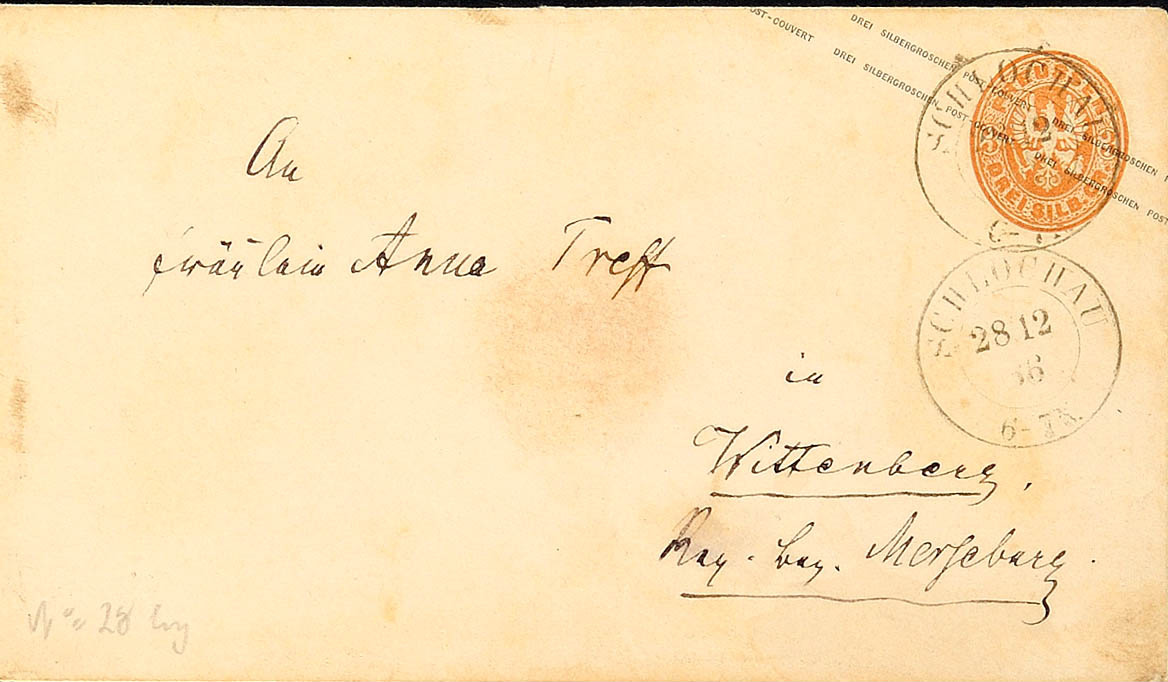 OST-COUVERT DREI SILBERGROSCHEN POST-COUVERT DREI SILBERGROSCHEN P
DREI SILBERGROSCHEN POST-COUVERT DREI SILBERGROSCHEN POST
DREI SILB. GR.
SCHLOCHAU
2
SCHLOCHAU
28 12
6-7 N
An
Fräulein Anna Treff
in
Wittenberg,
Reg. bez. Merseburg.
28